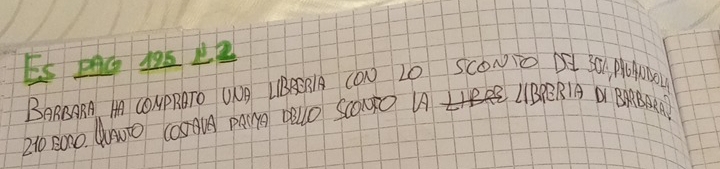 ES PAG 195 N2
BARBARA HA COMPRATO UNA LIBRERIA CON LO SCONTO DEL 30%, PAGANDOLA
210 EURO. QUANTO COSTAVA PRIMA DELLO SCONTO LA LIBRE LIBRERIA DI BARBARA?